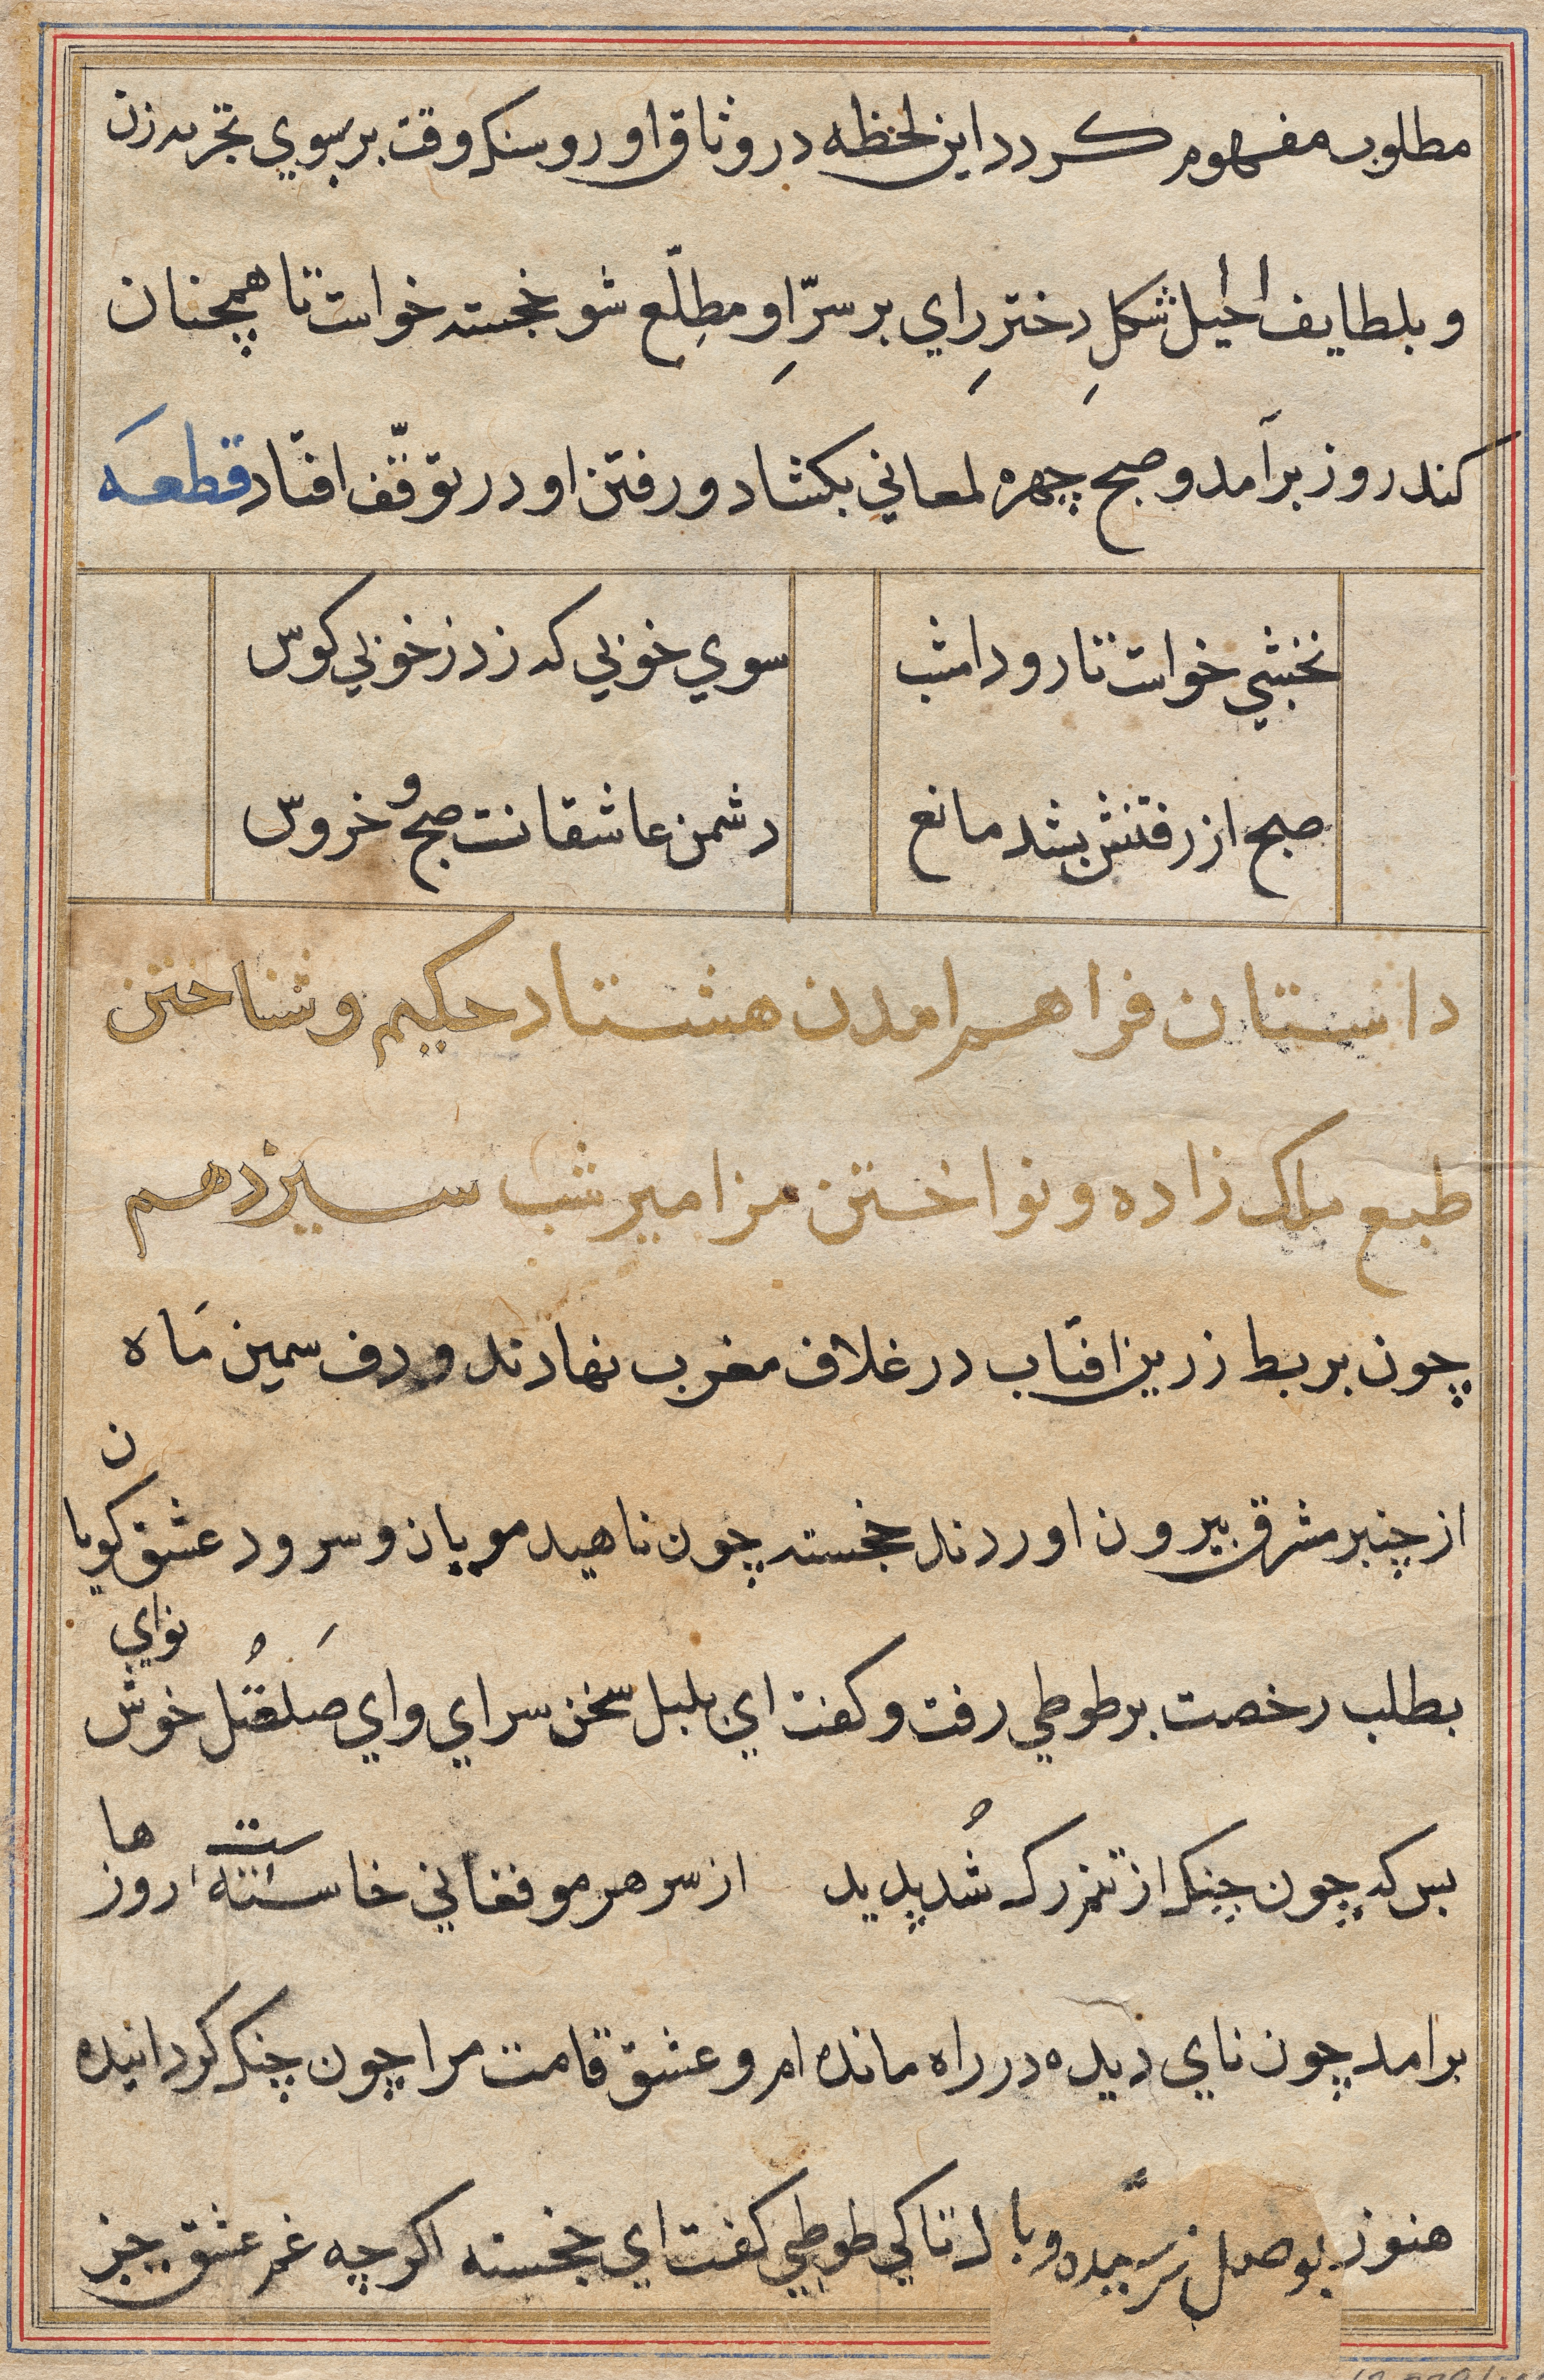 مطلوب مفهوم کردد این لحظه در وثاق او رو سنک وقت بر سوي تجربه زن
و بلطایف الحیل شکلِ دخترِ راي بر سرِّ او مطلّع شو خجسته خواست تا همچنان
کند روز برآمد و صبح چهره لمعاني بکشاد و رفتن او در توقّف افتاد قطعه
نخشبي خواست تا رود امشب سوي خوبي که زد ز خوبي کوس
صبح از رفتنش بشد مانع دشمن عاشقانت صبح و خروس
داستان فراهم امدن هشتاد حکیم و شناختن
طبع ملک زاده و نواختن مزامیر شب سیزدهم
چون بربط زرین افتاب در غلاف مغرب نهادند و دف سمین ماه
از چنبر مشرق بیرون اوردند خجسته چون ناهید مویان و سرود عشق کویان
بطلب رخصت بر طوطي رفت و کفت اي بلبل سخن سراي و اي صَلصُل خوش نواي
بس که چون چنک از تنم رک شُد پدید از سر هر مو فغاني خاسته است روزها
برامد چون ناي دیده در راه مانده ام و عشق قامت مرا چون چنک کردانیده
هنوز بوصل نرسیده و با لا تا کي طوطي کفت اي خجسته اکرچه غم عشق چیز